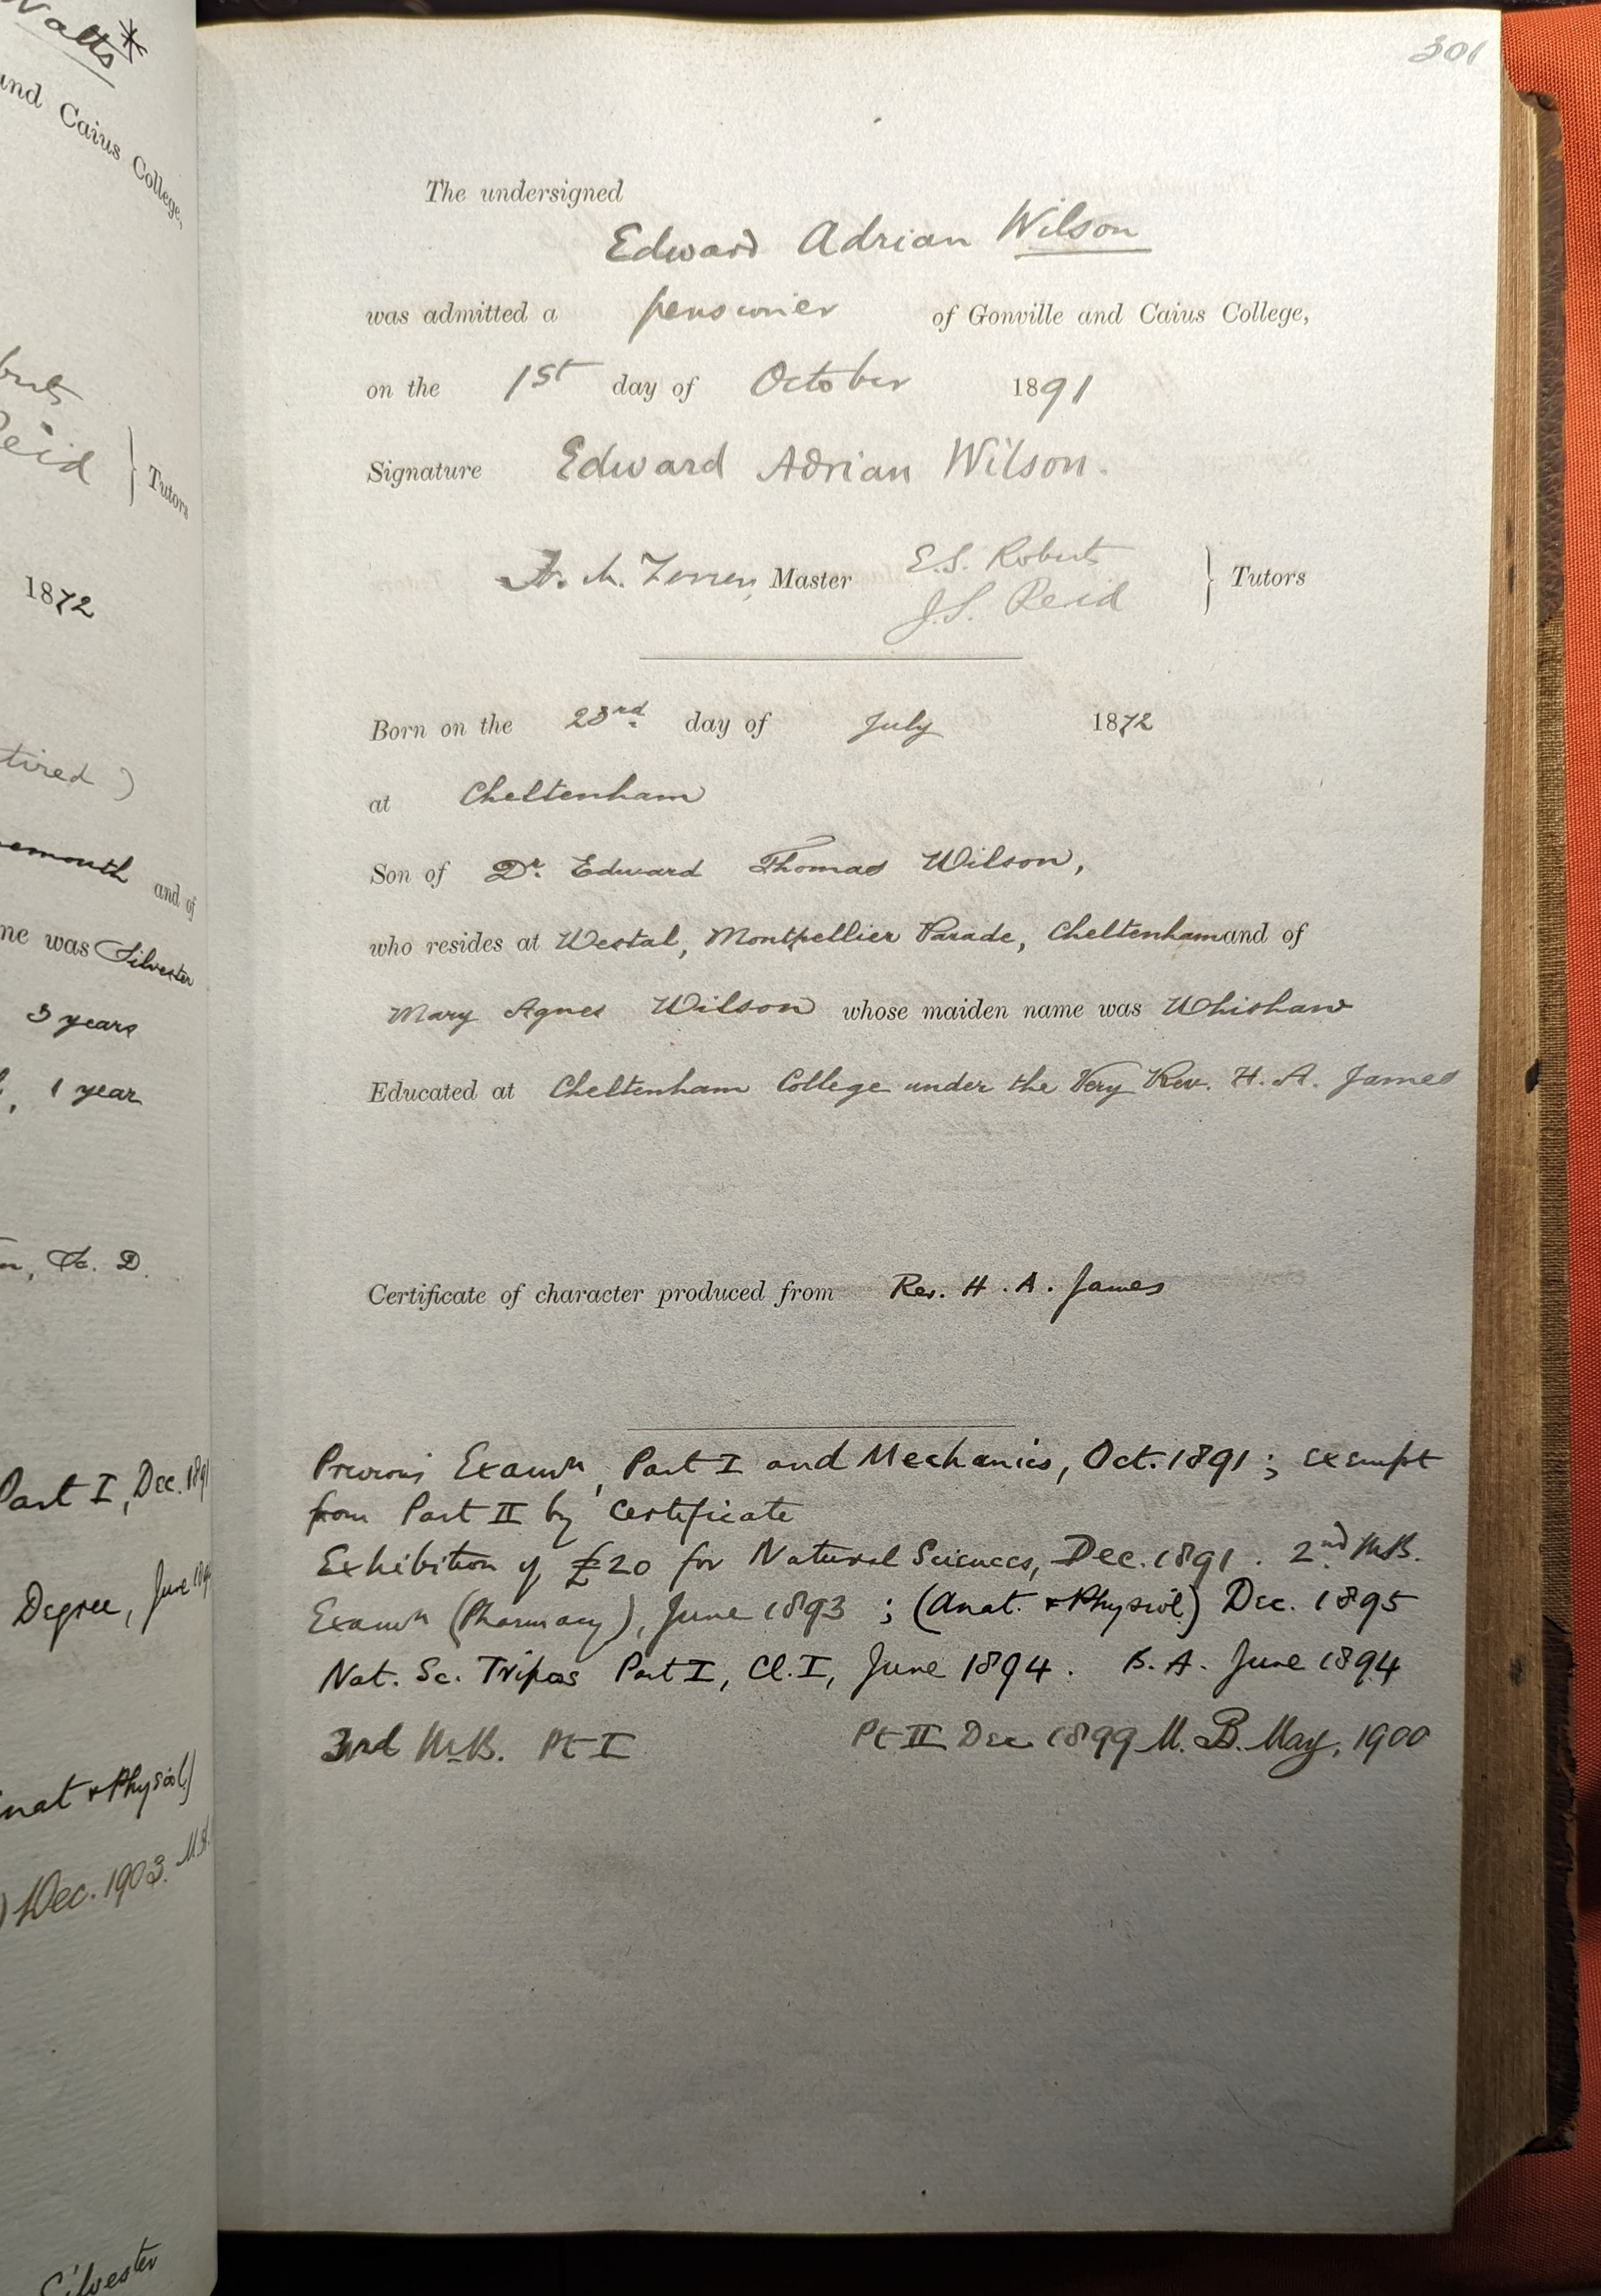 Watts*
and Caius College,
Reid } Tutors
1872
tired )
emouth and of
me was Silvester
3 years
, 1 year
Sc. D.
Part I, Dec. 1891
Degree, June
Anat & Physiol)
) Dec. 1903. M.B.
Silvester
301
The undersigned
Edward Adrian Wilson
was admitted a pensioner of Gonville and Caius College,
on the 1st day of October 1891
Signature Edward Adrian Wilson.
Master E.S. Roberts
J.S. Reid } Tutors
Born on the 23rd day of July 1872
at Cheltenham
Son of Dr. Edward Thomas Wilson,
who resides at Westal, Montpellier Parade, Cheltenham and of
Mary Agnes Wilson whose maiden name was Whishaw
Educated at Cheltenham College under the Very Rev. H. A. James
Certificate of character produced from Rev. H. A. James
Previous Examn, Part I and Mechanics, Oct. 1891; exempt
from Part II by Certificate
Exhibition of £20 for Natural Sciences, Dec. 1891. 2nd M.B.
Examn (Pharmacy), June 1893; (Anat. & Physiol) Dec. 1895
Nat. Sc. Tripos Part I, Cl. I, June 1894. B. A. June 1894
3rd M.B. Pt I Pt II Dec 1899 M. B. May, 1900